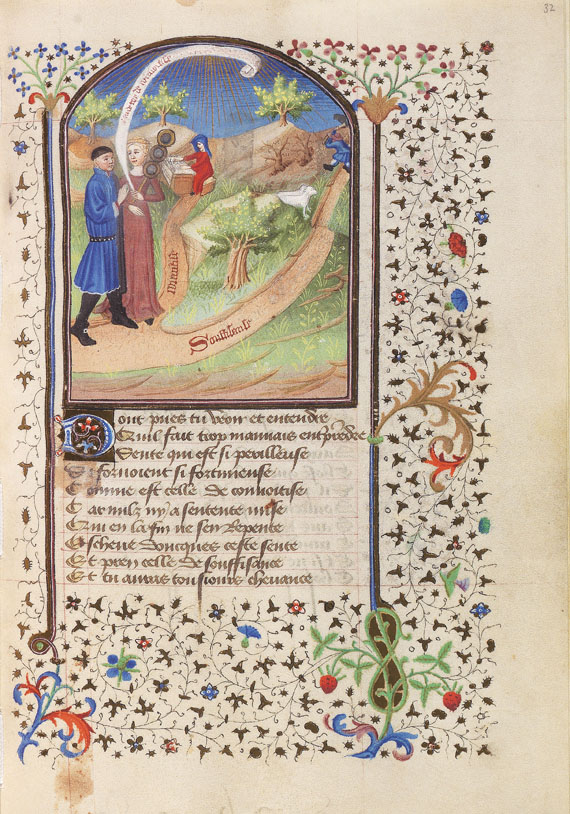 82
Souffisance
Dont pues tu veoir et entendre
Quil fait trop mauuais entprendre
Sente qui est si perilleuse
Si foruoient si fortuneuse
Comme est celle de conuoitise
Car nulz ny a sentente mise
Qui en la fin ne sen repente
Escheue doncques ceste sente
Et pren celle de souffisance
Et tu auras tousiours cheuance